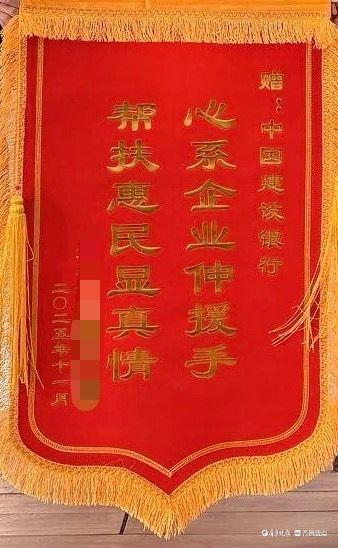 赠：中国建设银行
心系企业伸援手
帮扶惠民显真情
二〇二五年十一月
齐鲁晚报 齐鲁壹点